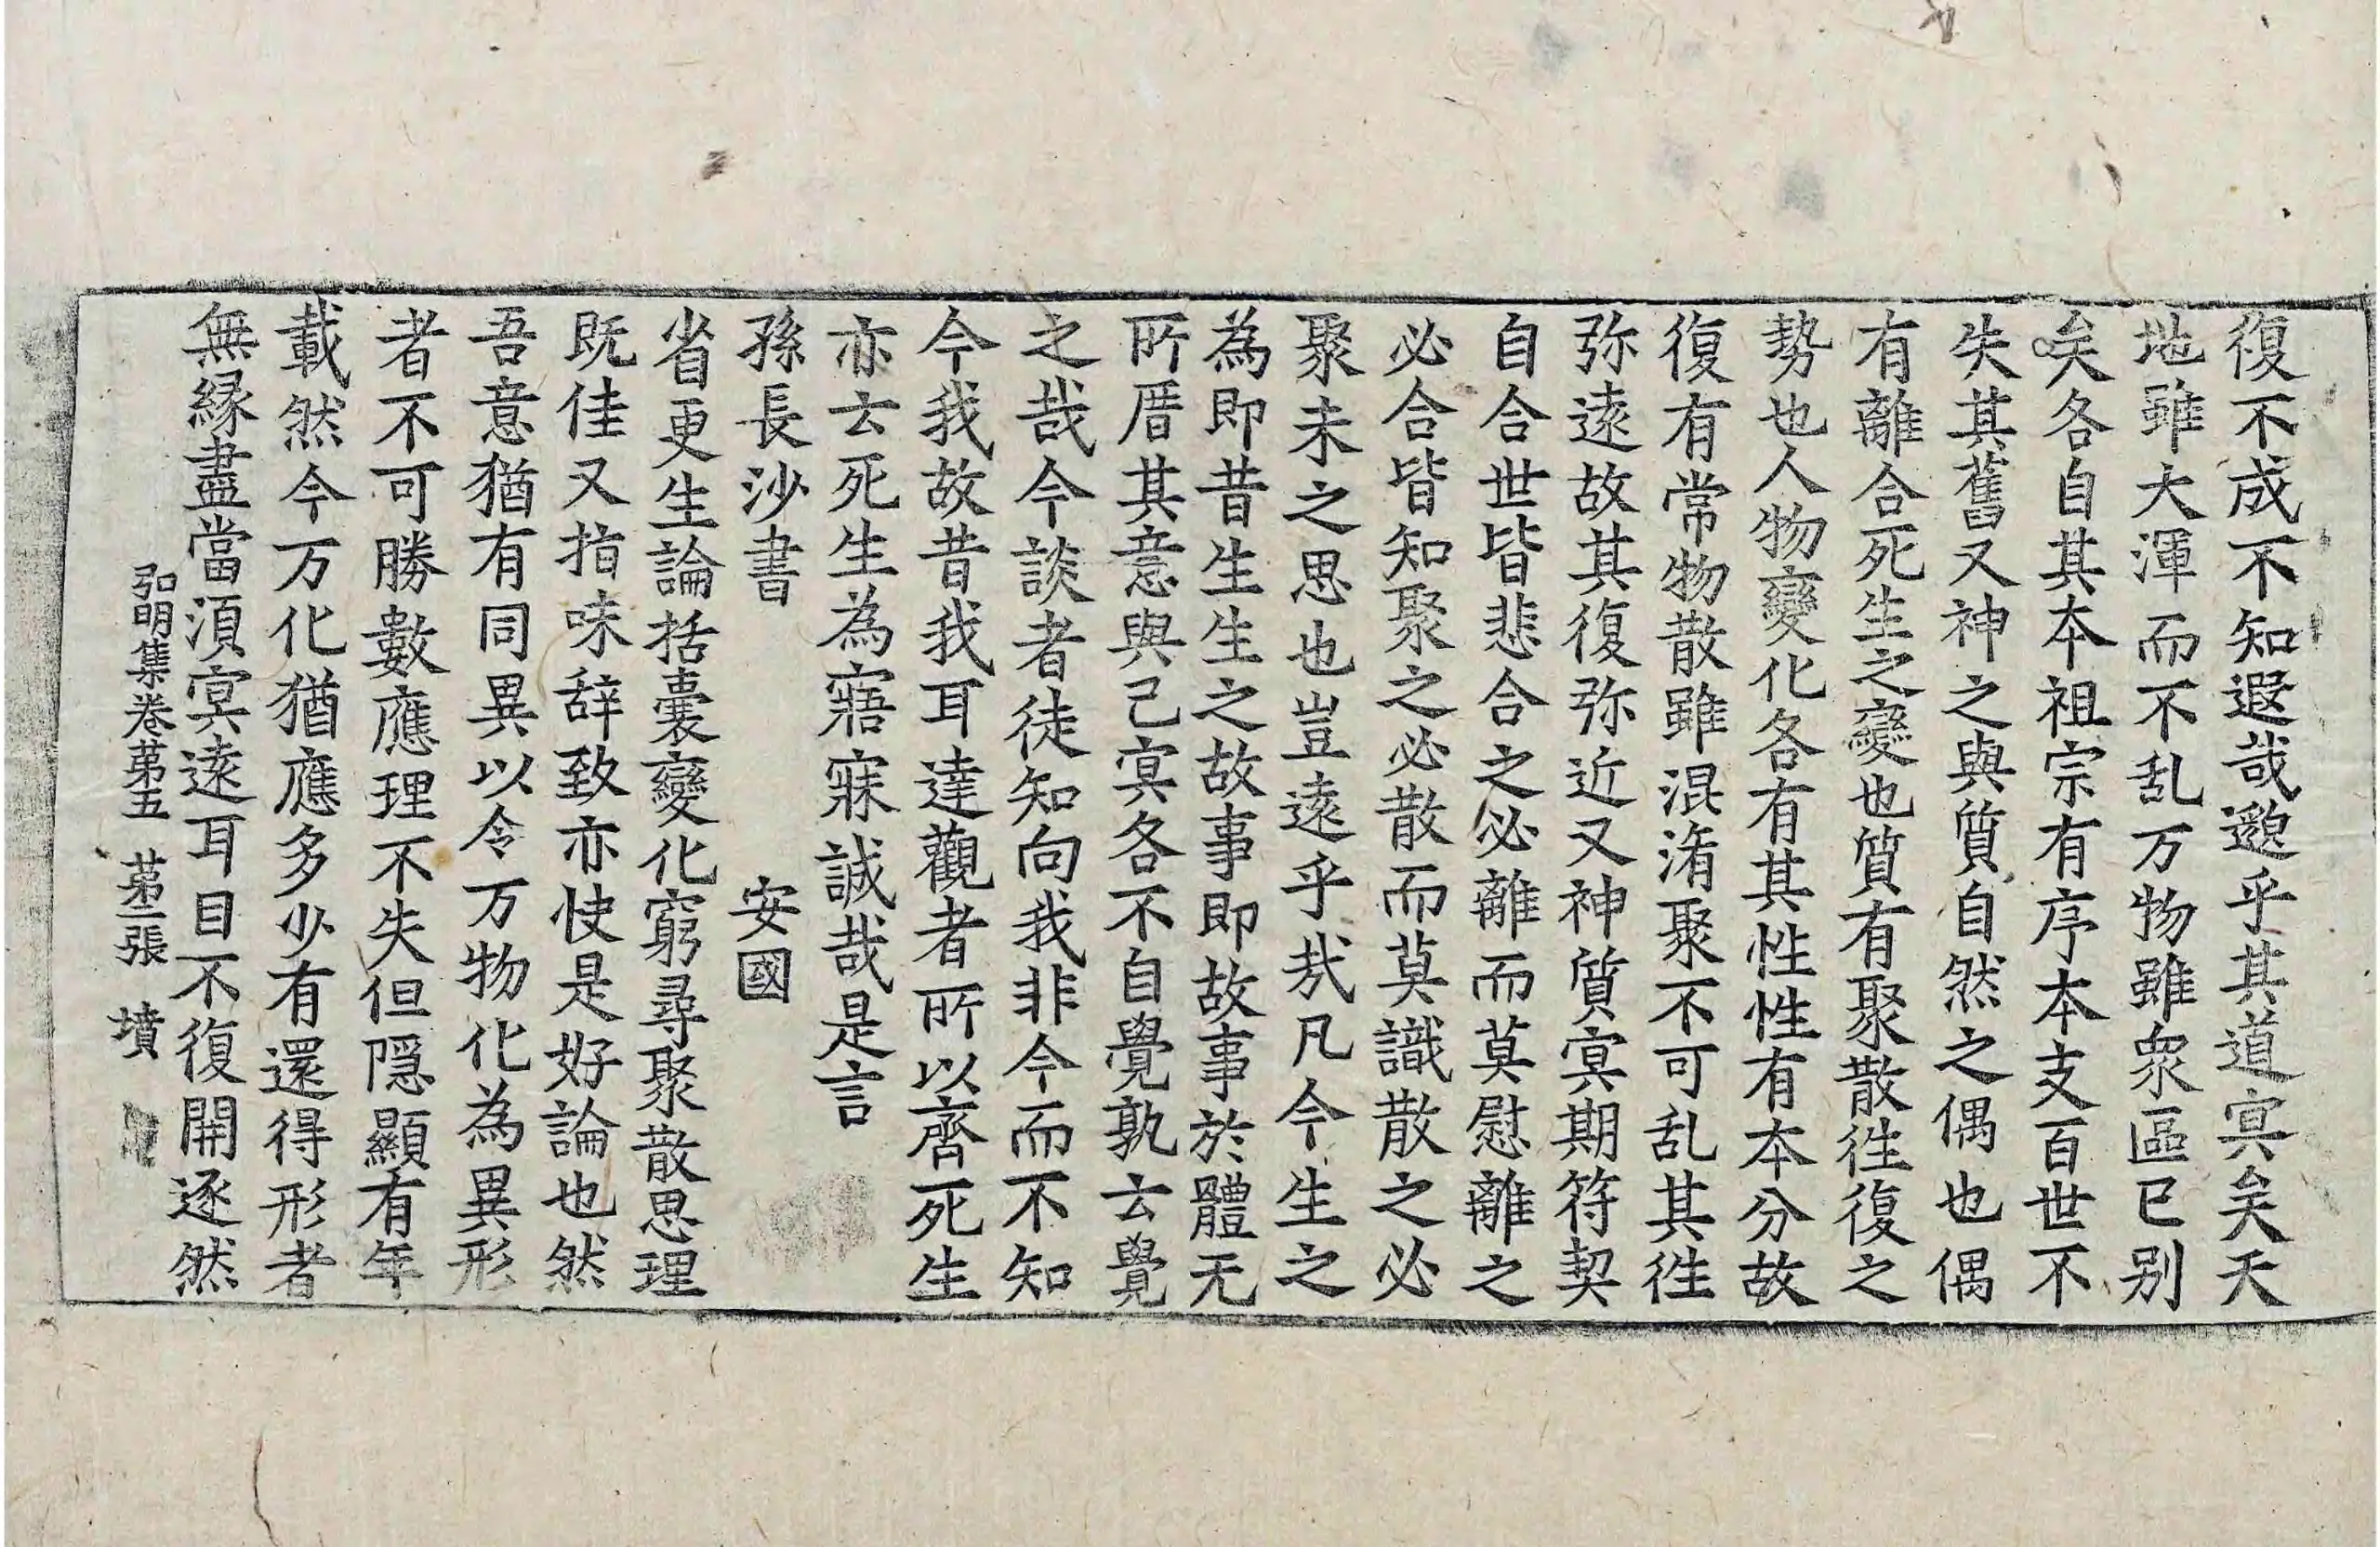 復不成不知遐哉邈乎其道㝠矣天
地雖大渾而不乱万物雖衆區已别
矣各自其本祖宗有序本支百世不
失其舊又神之與質自然之偶也偶
有離合死生之變也質有聚散徃復之
勢也人物變化各有其性性有本分故
復有常物散雖混淆聚不可乱其徃
弥遠故其復弥近又神質㝠期符契
自合世皆悲合之必離而莫慰離之
必合皆知聚之必散而莫識散之必
聚未之思也豈遠乎㢤凡今生之
為即昔生生之故事即故事於體无
所厝其意與己㝠各不自覺孰云覺
之哉今談者徒知向我非今而不知
今我故昔我耳達觀者所以齊死生
亦云死生為寤寐誠哉是言
孫長沙書　安國
省更生論括囊變化窮尋聚散思理
既佳又指味辞致亦快是好論也然
吾意猶有同異以令万物化為異形
者不可勝數應理不失但隠顯有年
載然今万化猶應多少有還得形者
無縁盡當湏㝠遠耳目不復開逐然
弘明集卷苐五　苐二張　墳